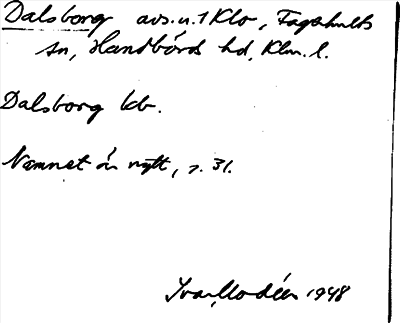 Dalsborg avs. u. 1 Klo, Fagerhults
sn, Handbörds hd, Klm. l.
Dalsborg kb.
Namnet är nytt, s. 31.
Ivar Modéer 1948